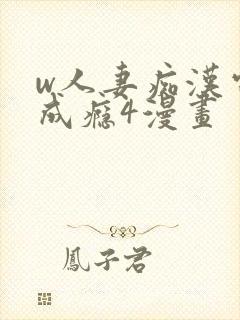 w人妻痴漢電
成瘾4漫畫
鳳子君